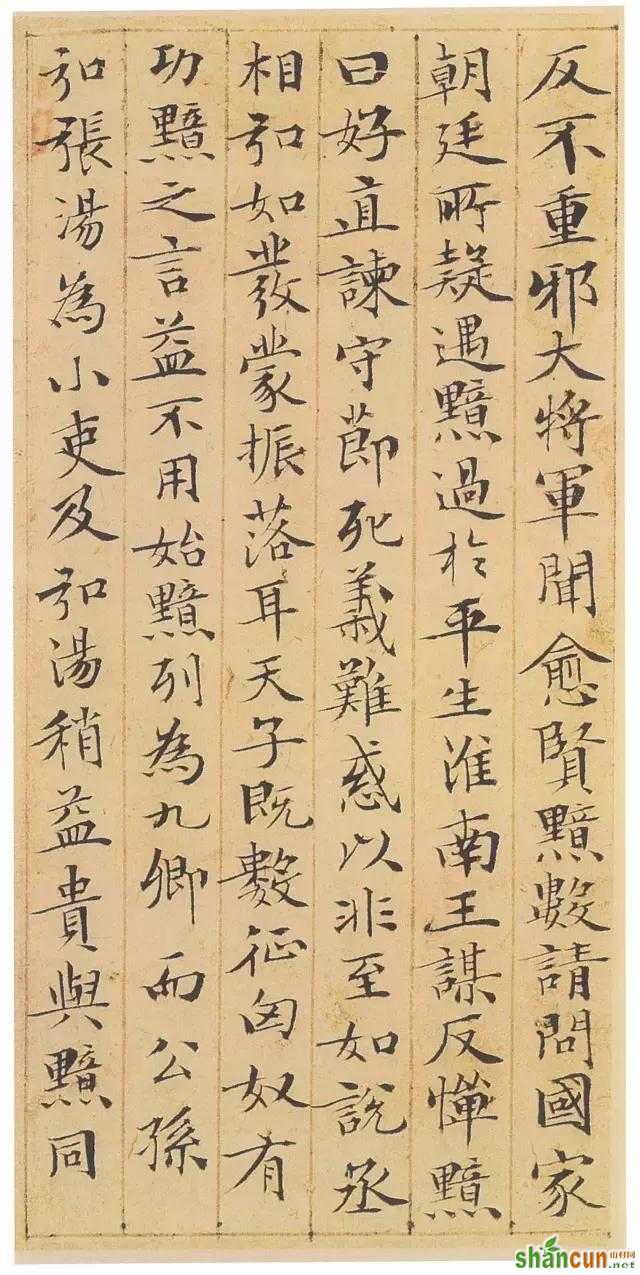 反不重邪大將軍聞愈賢黯數請問國家
朝廷所疑遇黯過於平生淮南王謀反憚黯
曰好直諫守節死義難惑以非至如說丞
相弘如發蒙振落耳天子既數征匈奴有
功黯之言益不用始黯列為九卿而公孫
弘張湯為小吏及弘湯稍益貴與黯同
shancun 山村网
.net